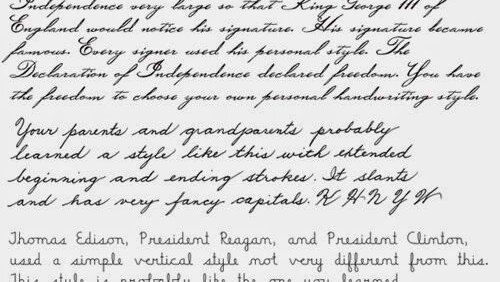 Independence very large so that King George III of
England would notice his signature. His signature became
famous. Every signer used his personal style. The
Declaration of Independence declared freedom. You have
the freedom to choose your own personal handwriting style.
Your parents and grandparents probably
learned a style like this with extended
beginning and ending strokes. It slants
and has very fancy capitals. K H N Y W
Thomas Edison, President Reagan, and President Clinton,
used a simple vertical style not very different from this.
This style is probably like the one you learned